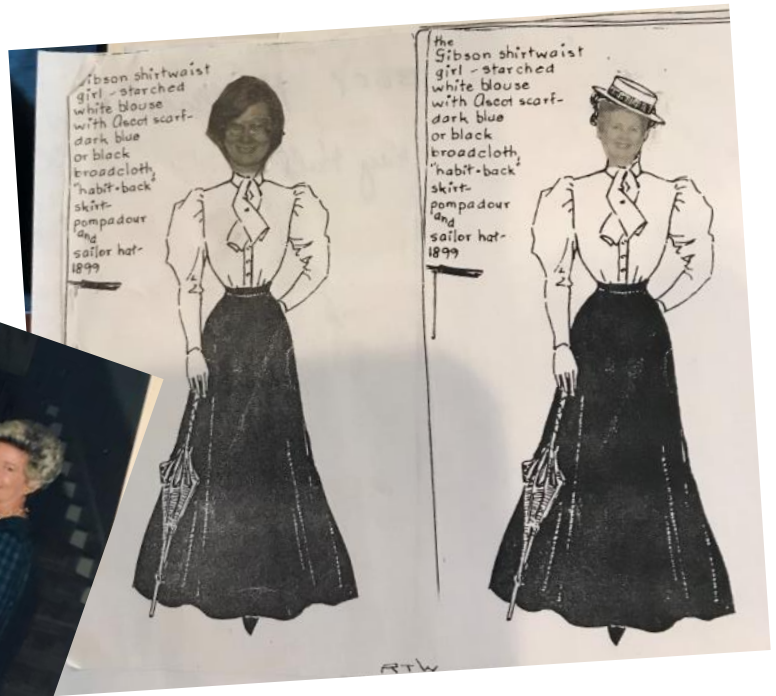 ibson shirtwaist
girl - starched
white blouse
with Ascot scarf-
dark blue
or black
broadcloth,
"habit-back"
skirt-
pompadour
and
sailor hat-
1899
the
Gibson shirtwaist
girl - starched
white blouse
with Ascot scarf-
dark blue
or black
broadcloth,
"habit-back"
skirt-
pompadour
and
sailor hat-
1899
RTW